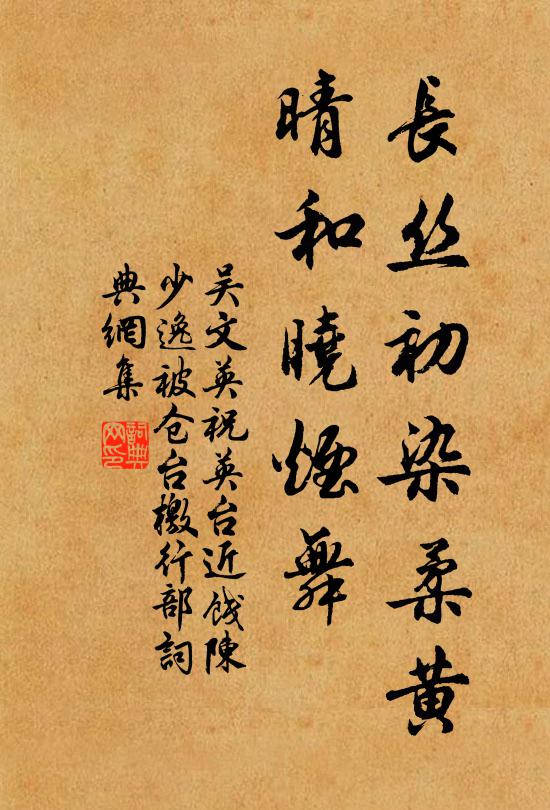 長丝初染柔黄
晴和曉煙舞
吴文英祝英台近餞陳
少逸被仓台檄行部詞
典網集
詞典
网印